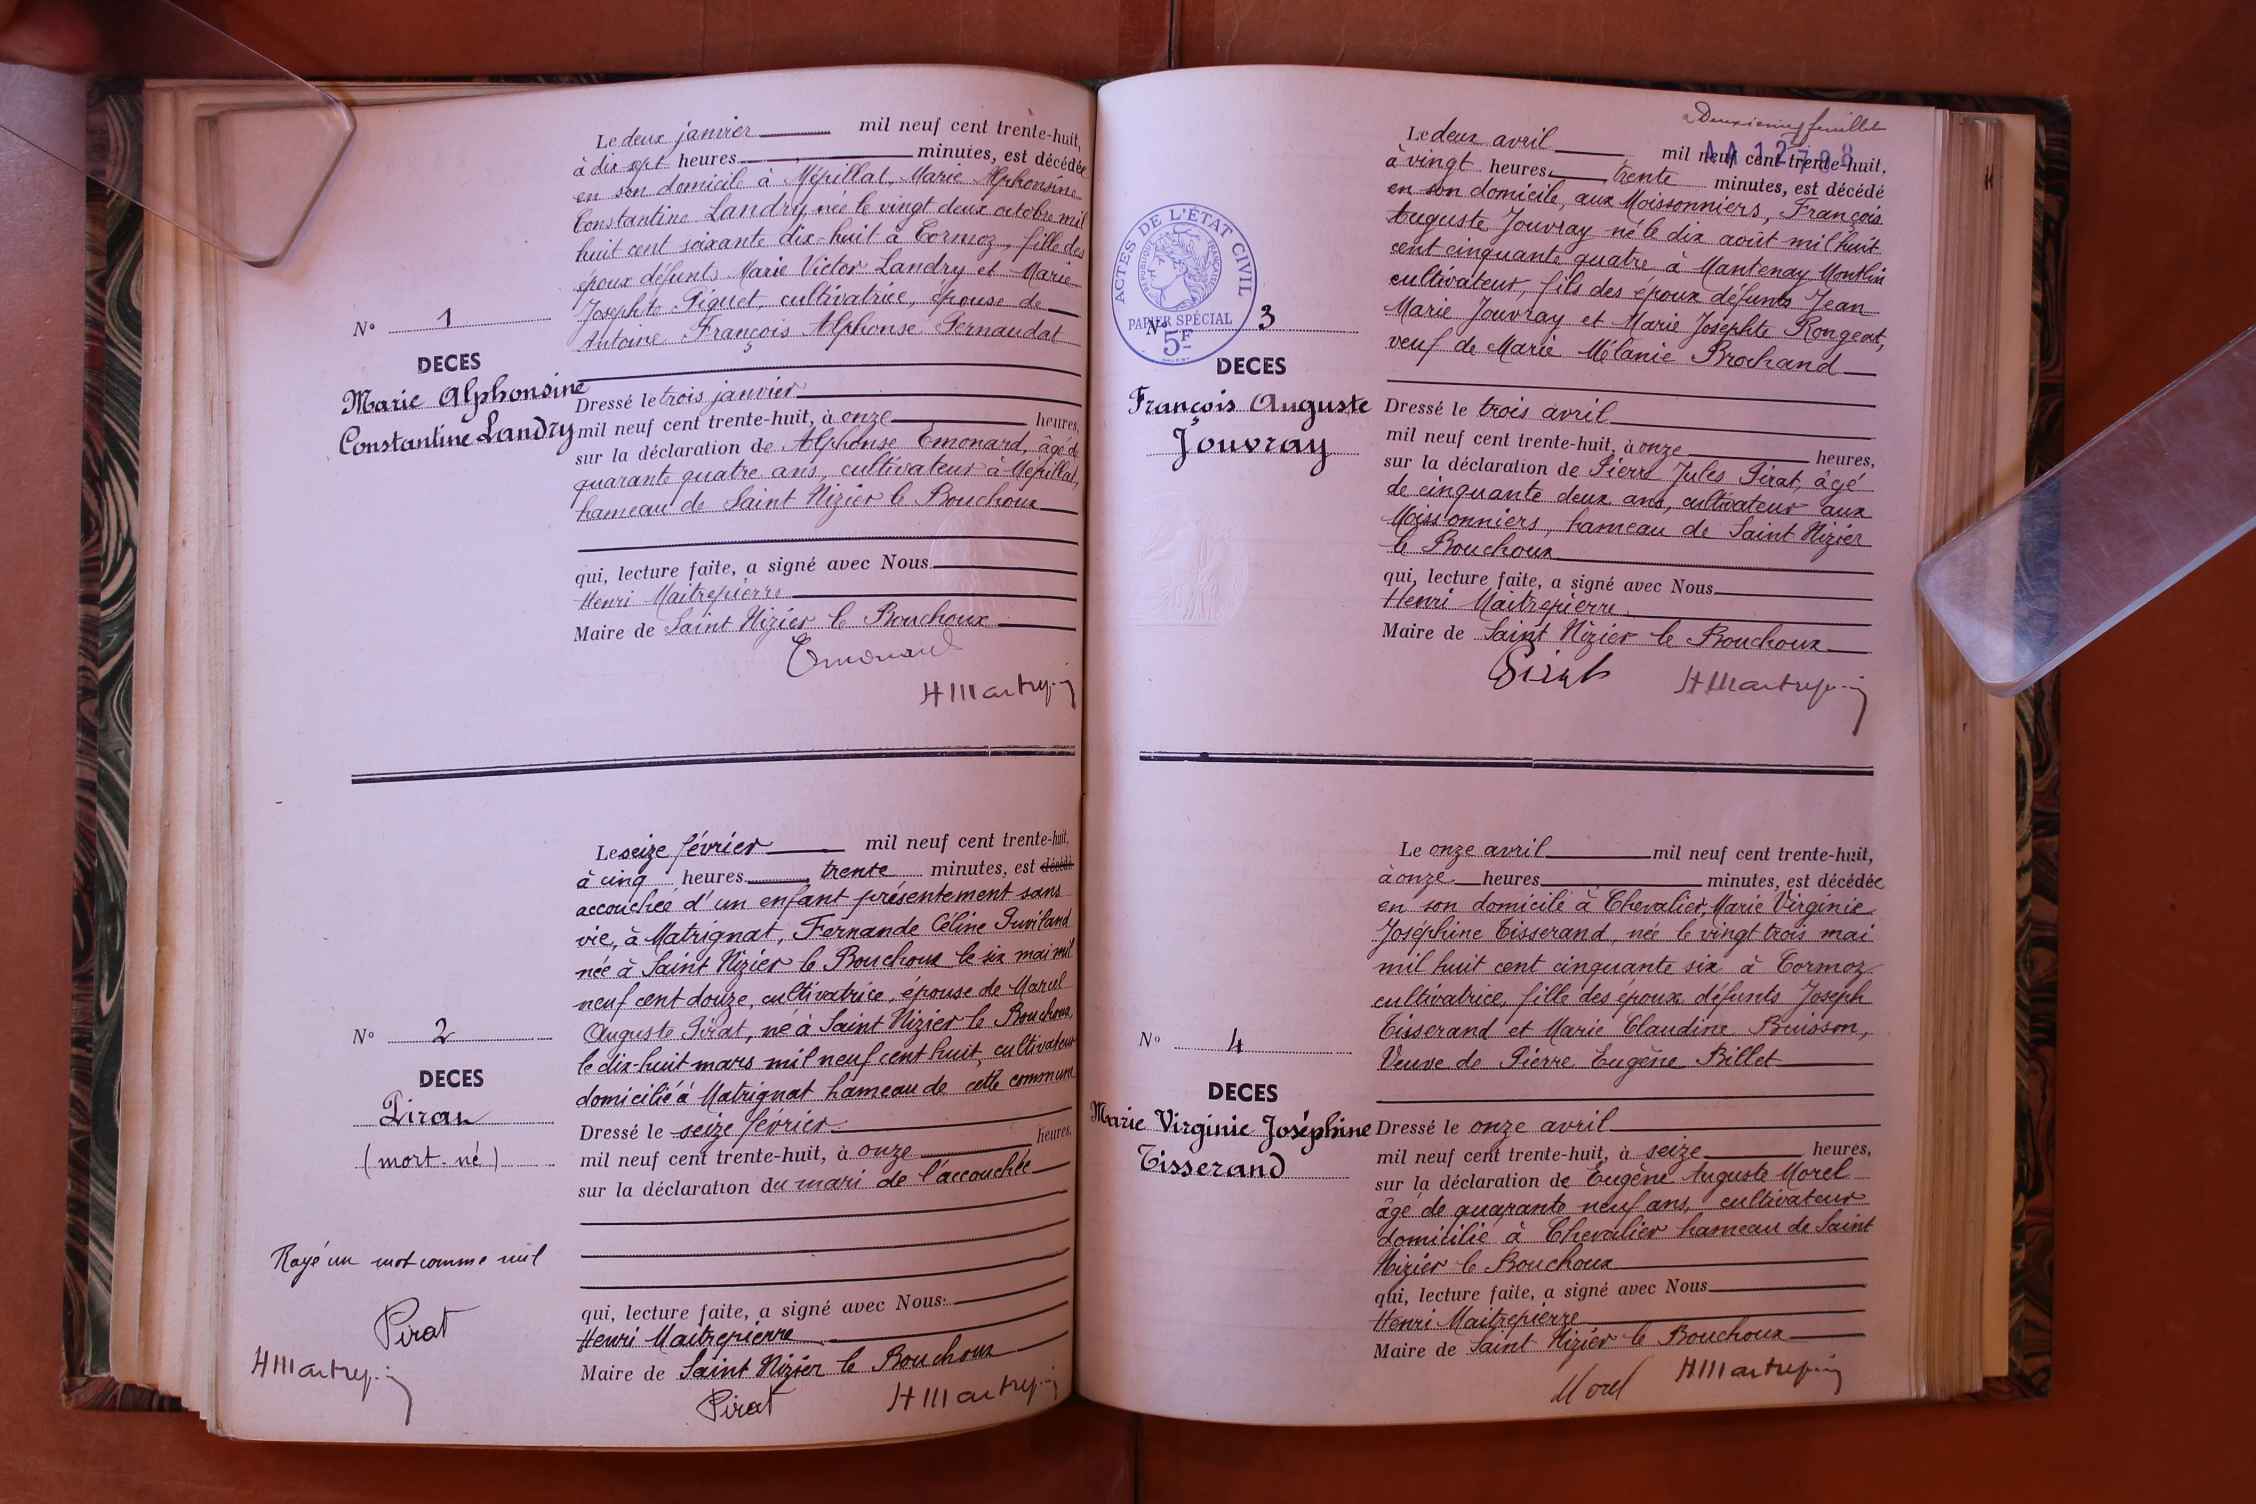 Le deux janvier mil neuf cent trente-huit,
à dix sept heures minutes, est décédée
en son domicile à Mépillat, Marie Alphonsine
Constantine Landry, née le vingt deux octobre mil
huit cent soixante dix-huit à Cormoz, fille des
époux défunts Marie Victor Landry et Marie
Josephte Piguet, cultivatrice, épouse de
Antoine François Alphonse Pernaudat
N° 1
DECES
Marie Alphonsine
Constantine Landry
Dressé le trois janvier
mil neuf cent trente-huit, à onze heures,
sur la déclaration de Alphonse Emonard, âgé de
quarante quatre ans, cultivateur à Mépillat,
hameau de Saint Nizier le Bouchoux
qui, lecture faite, a signé avec Nous
Henri Maitrepierre
Maire de Saint Nizier le Bouchoux
Emonard
HMaitrepi
Le seize février mil neuf cent trente-huit,
à cinq heures trente minutes, est décédé
accouchée d'un enfant présentement sans
vie, à Matrignat, Fernande Céline
née à Saint Nizier le Bouchoux le six mai mil
neuf cent douze, cultivatrice, épouse de Marcel
Auguste Pirat, né à Saint Nizier le Bouchoux,
le dix-huit mars mil neuf cent huit, cultivateur
domicilié à Matrignat hameau de cette commune
N° 2
DECES
Pirat
(mort-né)
Dressé le seize février
mil neuf cent trente-huit, à onze heures,
sur la déclaration du mari de l'accouchée
Rayé un mot comme nul
Pirat
HMaitrepi
qui, lecture faite, a signé avec Nous
Henri Maitrepierre
Maire de Saint Nizier le Bouchoux
Pirat HMaitrepi
Deuxième feuillet
Le deux avril mil neuf cent trente-huit,
à vingt heures trente minutes, est décédé
en son domicile, aux Moissonniers, François
Auguste Jouvray né le dix août mil huit
cent cinquante quatre à Mantenay Montlin
cultivateur, fils des époux défunts Jean
Marie Jouvray et Marie Josephte Rongeat,
veuf de Marie Mélanie Brochand
ACTES DE L'ÉTAT CIVIL
RÉPUBLIQUE FRANÇAISE
PAPIER SPÉCIAL
5F
N° 3
DECES
François Auguste
Jouvray
Dressé le trois avril
mil neuf cent trente-huit, à onze heures,
sur la déclaration de Pierre Jules Pirat, âgé
de cinquante deux ans, cultivateur aux
Moissonniers, hameau de Saint Nizier
le Bouchoux
qui, lecture faite, a signé avec Nous
Henri Maitrepierre
Maire de Saint Nizier le Bouchoux
Pirat HMaitrepi
Le onze avril mil neuf cent trente-huit,
à onze heures minutes, est décédée
en son domicile à Chevalier, Marie Virginie
Joséphine Tisserand, née le vingt trois mai
mil huit cent cinquante six à Cormoz
cultivatrice, fille des époux défunts Joseph
Tisserand et Marie Claudine Buisson,
Veuve de Pierre Eugène Billet
N° 4
DECES
Marie Virginie Joséphine
Tisserand
Dressé le onze avril
mil neuf cent trente-huit, à seize heures,
sur la déclaration de Eugène Auguste Morel
âgé de quarante neuf ans, cultivateur
domicilié à Chevalier hameau de Saint
Nizier le Bouchoux
qui, lecture faite, a signé avec Nous
Henri Maitrepierre
Maire de Saint Nizier le Bouchoux
Morel HMaitrepi